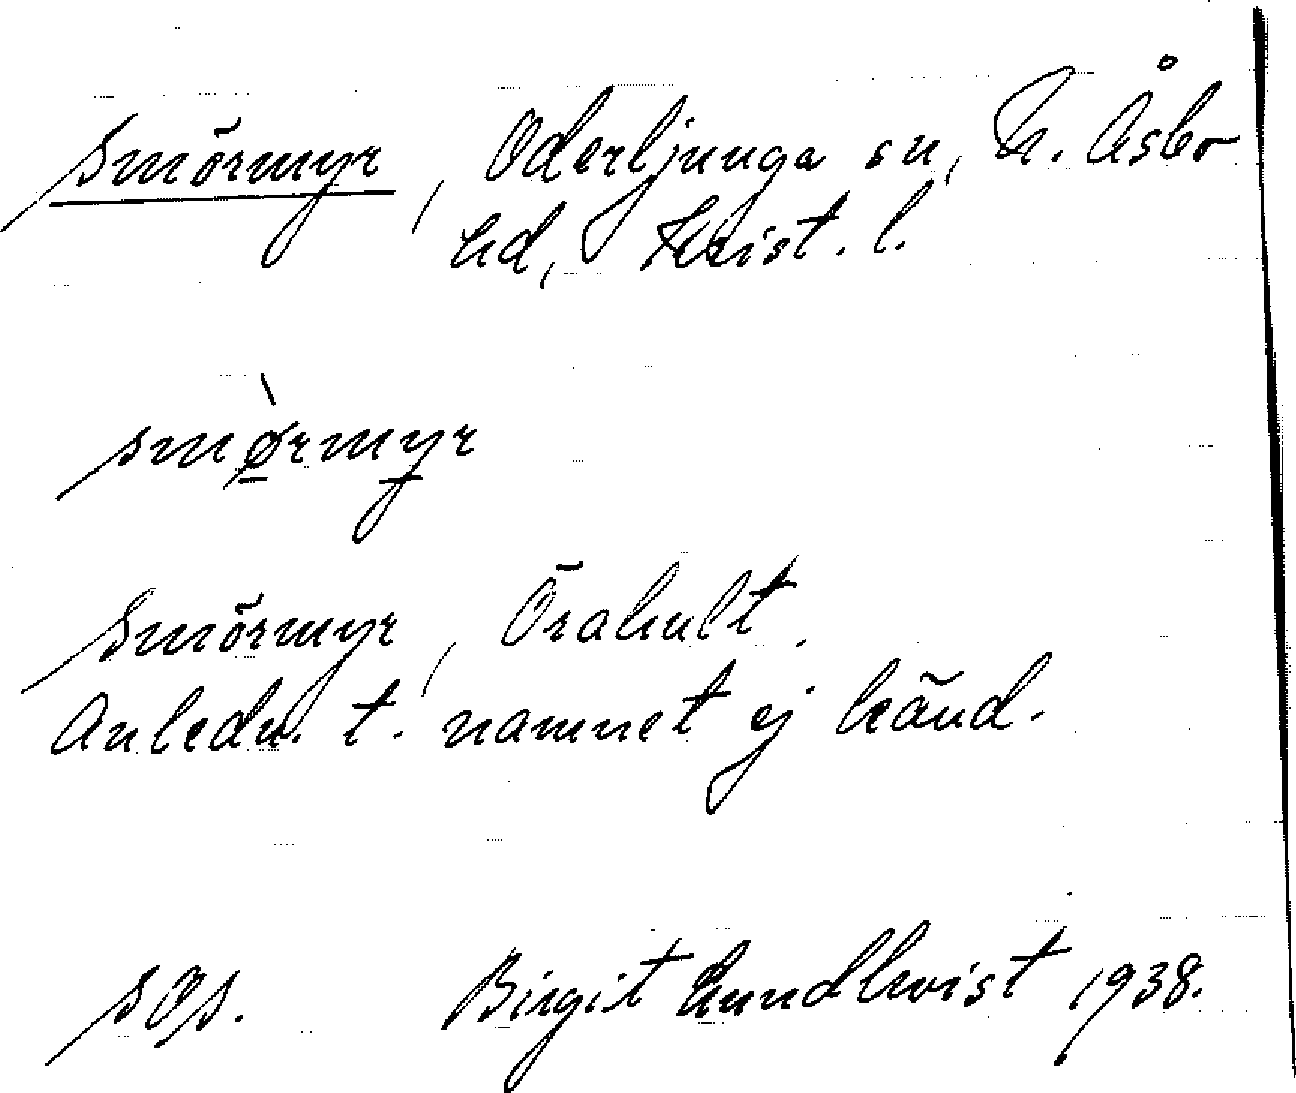 Smörmyr, Oderljunga sn, N. Åsbo
hd, Krist. l.
smø̱̀rmy̱r
Smörmyr, Örahult.
Anledn. t. namnet ej känd.
sOs. Birgit Lundkvist 1938.